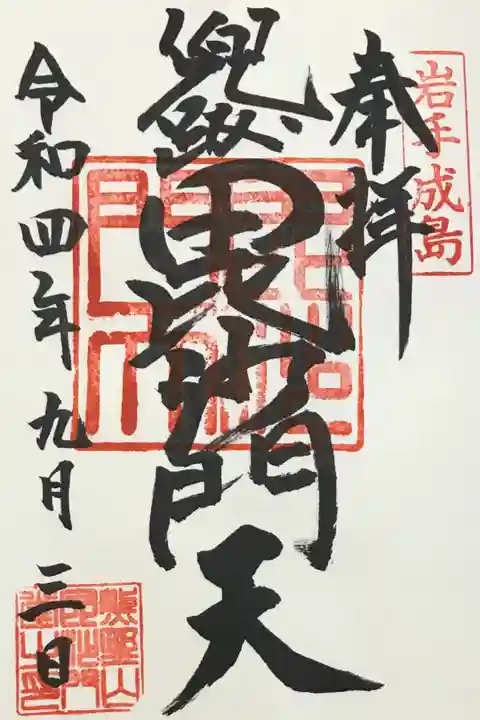 岩手成島
奉拝
兜跋毘沙門天
令和四年九月三日